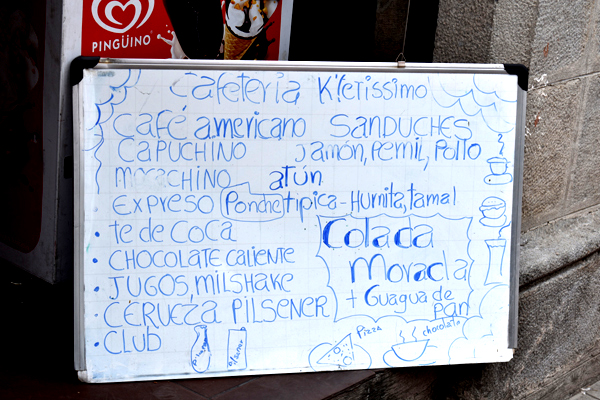 PINGÜINO
Cafetería K'fetissimo
Café americano SANDUCHES
CAPUCHINO Jamón, Pernil, Pollo
mocachino atún
EXPRESO Ponche típica - Humita, tamal
• te de COCA
• CHOCOLATE CALIENTE
• JUGOS, MILSHAKE
• CERUEZA PILSENER
• CLUB
Colada
Moracla
+ Guagua de
Pan
Pizza
chocolate